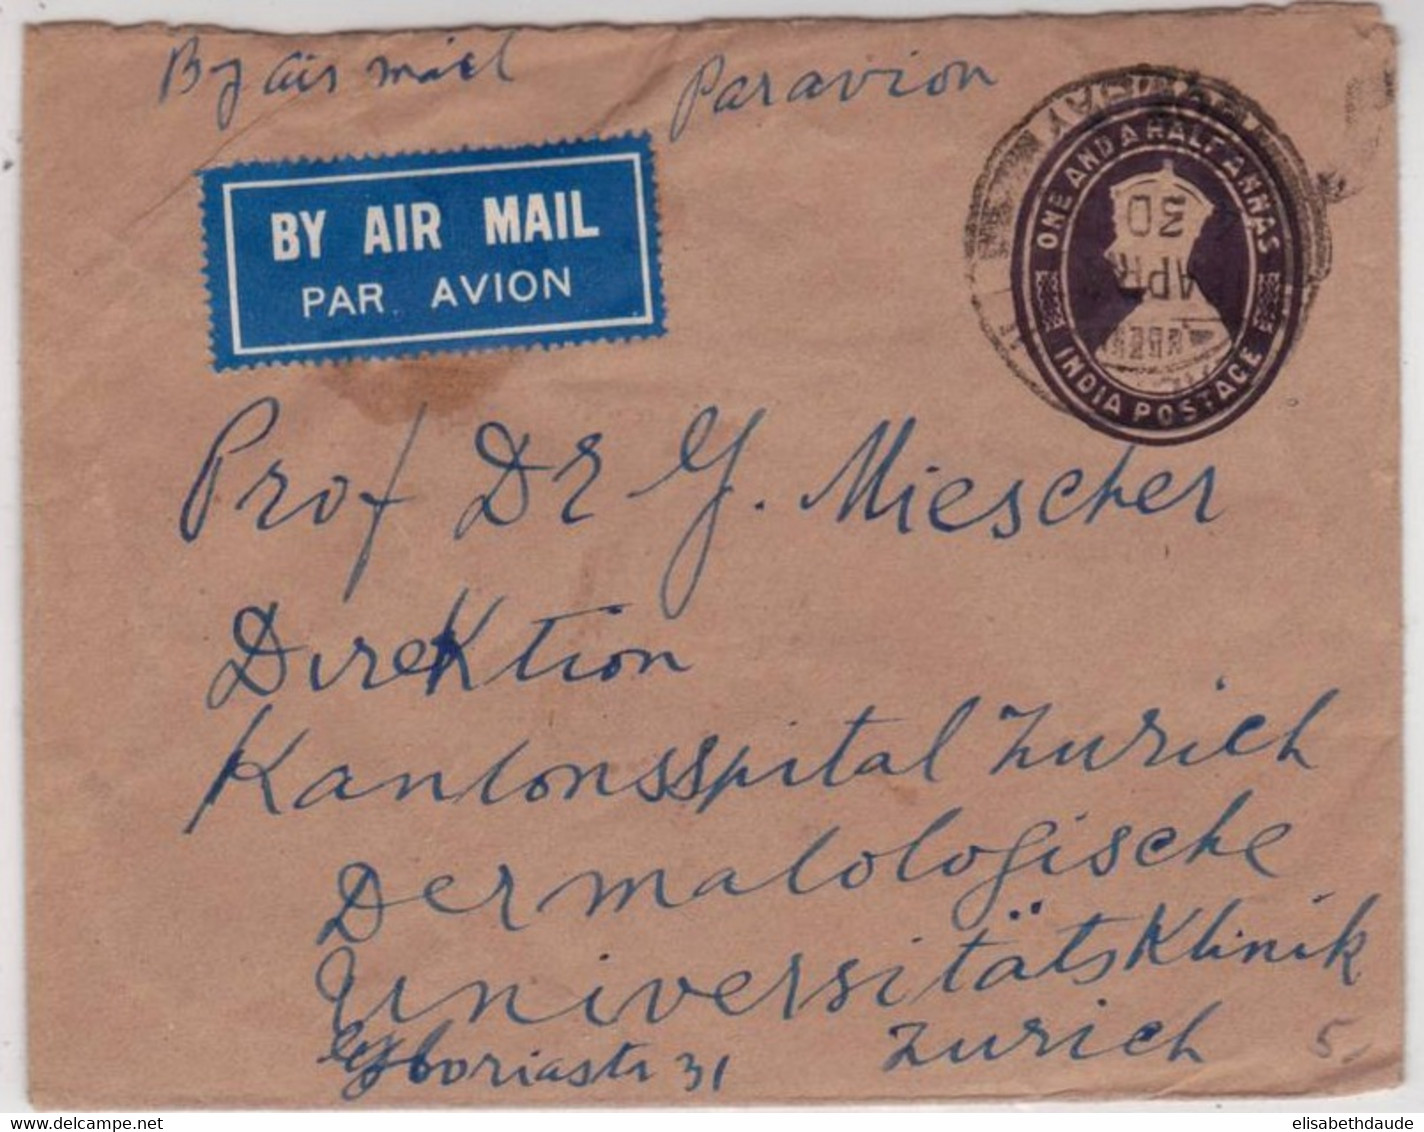 By air mail Par avion
BY AIR MAIL
PAR AVION
ONE AND A HALF ANNAS
INDIA POSTAGE
30
APR
Prof Dr G. Miescher
Direktion
Kantonsspital Zurich
Dermatologische
Universitätsklinik
Gloriastr 31 Zurich
5.
elisabethdaude
www.delcampe.net